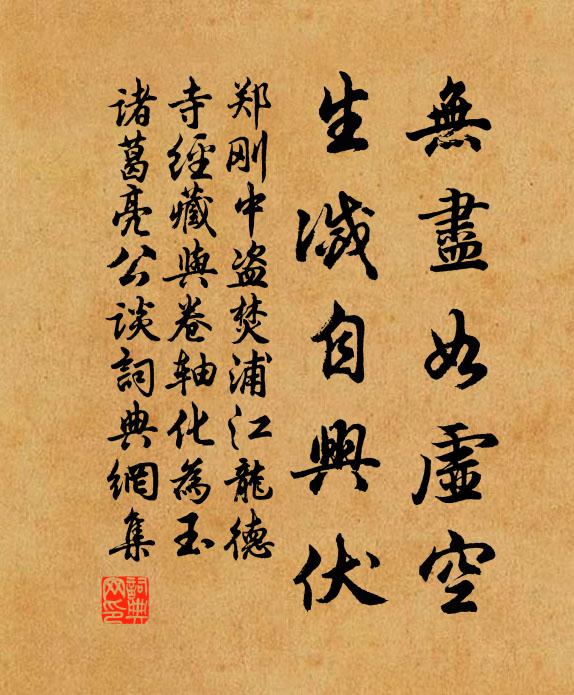 無盡如虛空
生滅自興伏
郑刚中盗焚浦江龍德
寺經藏與卷軸化為玉
诸葛亮公谈詞典網集
詞典网印